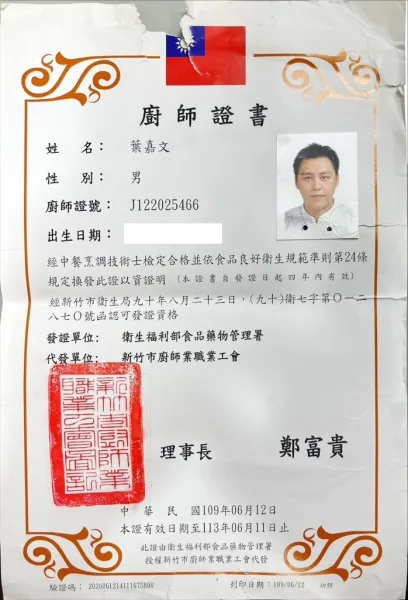 廚師證書
姓名：葉嘉文
性別：男
廚師證號：J122025466
出生日期：
經中餐烹調技術士檢定合格並依食品良好衛生規範準則第24條
規定換發此證以資證明（本證書自發證日起四年內有效）
經新竹市衛生局九十年八月二十三日，(九十)衛七字第〇一二
八七〇號函認可發證資格
發證單位：衛生福利部食品藥物管理署
代發單位：新竹市廚師業職業工會
新竹市廚師業
職業工會圖記
理事長 鄭富貴
中華民國109年06月12日
本證有效日期至113年06月11日止
此證由衛生福利部食品藥物管理署
授權新竹市廚師業職業工會代發
驗證碼：2020061214111675800 列印日期：109/06/12